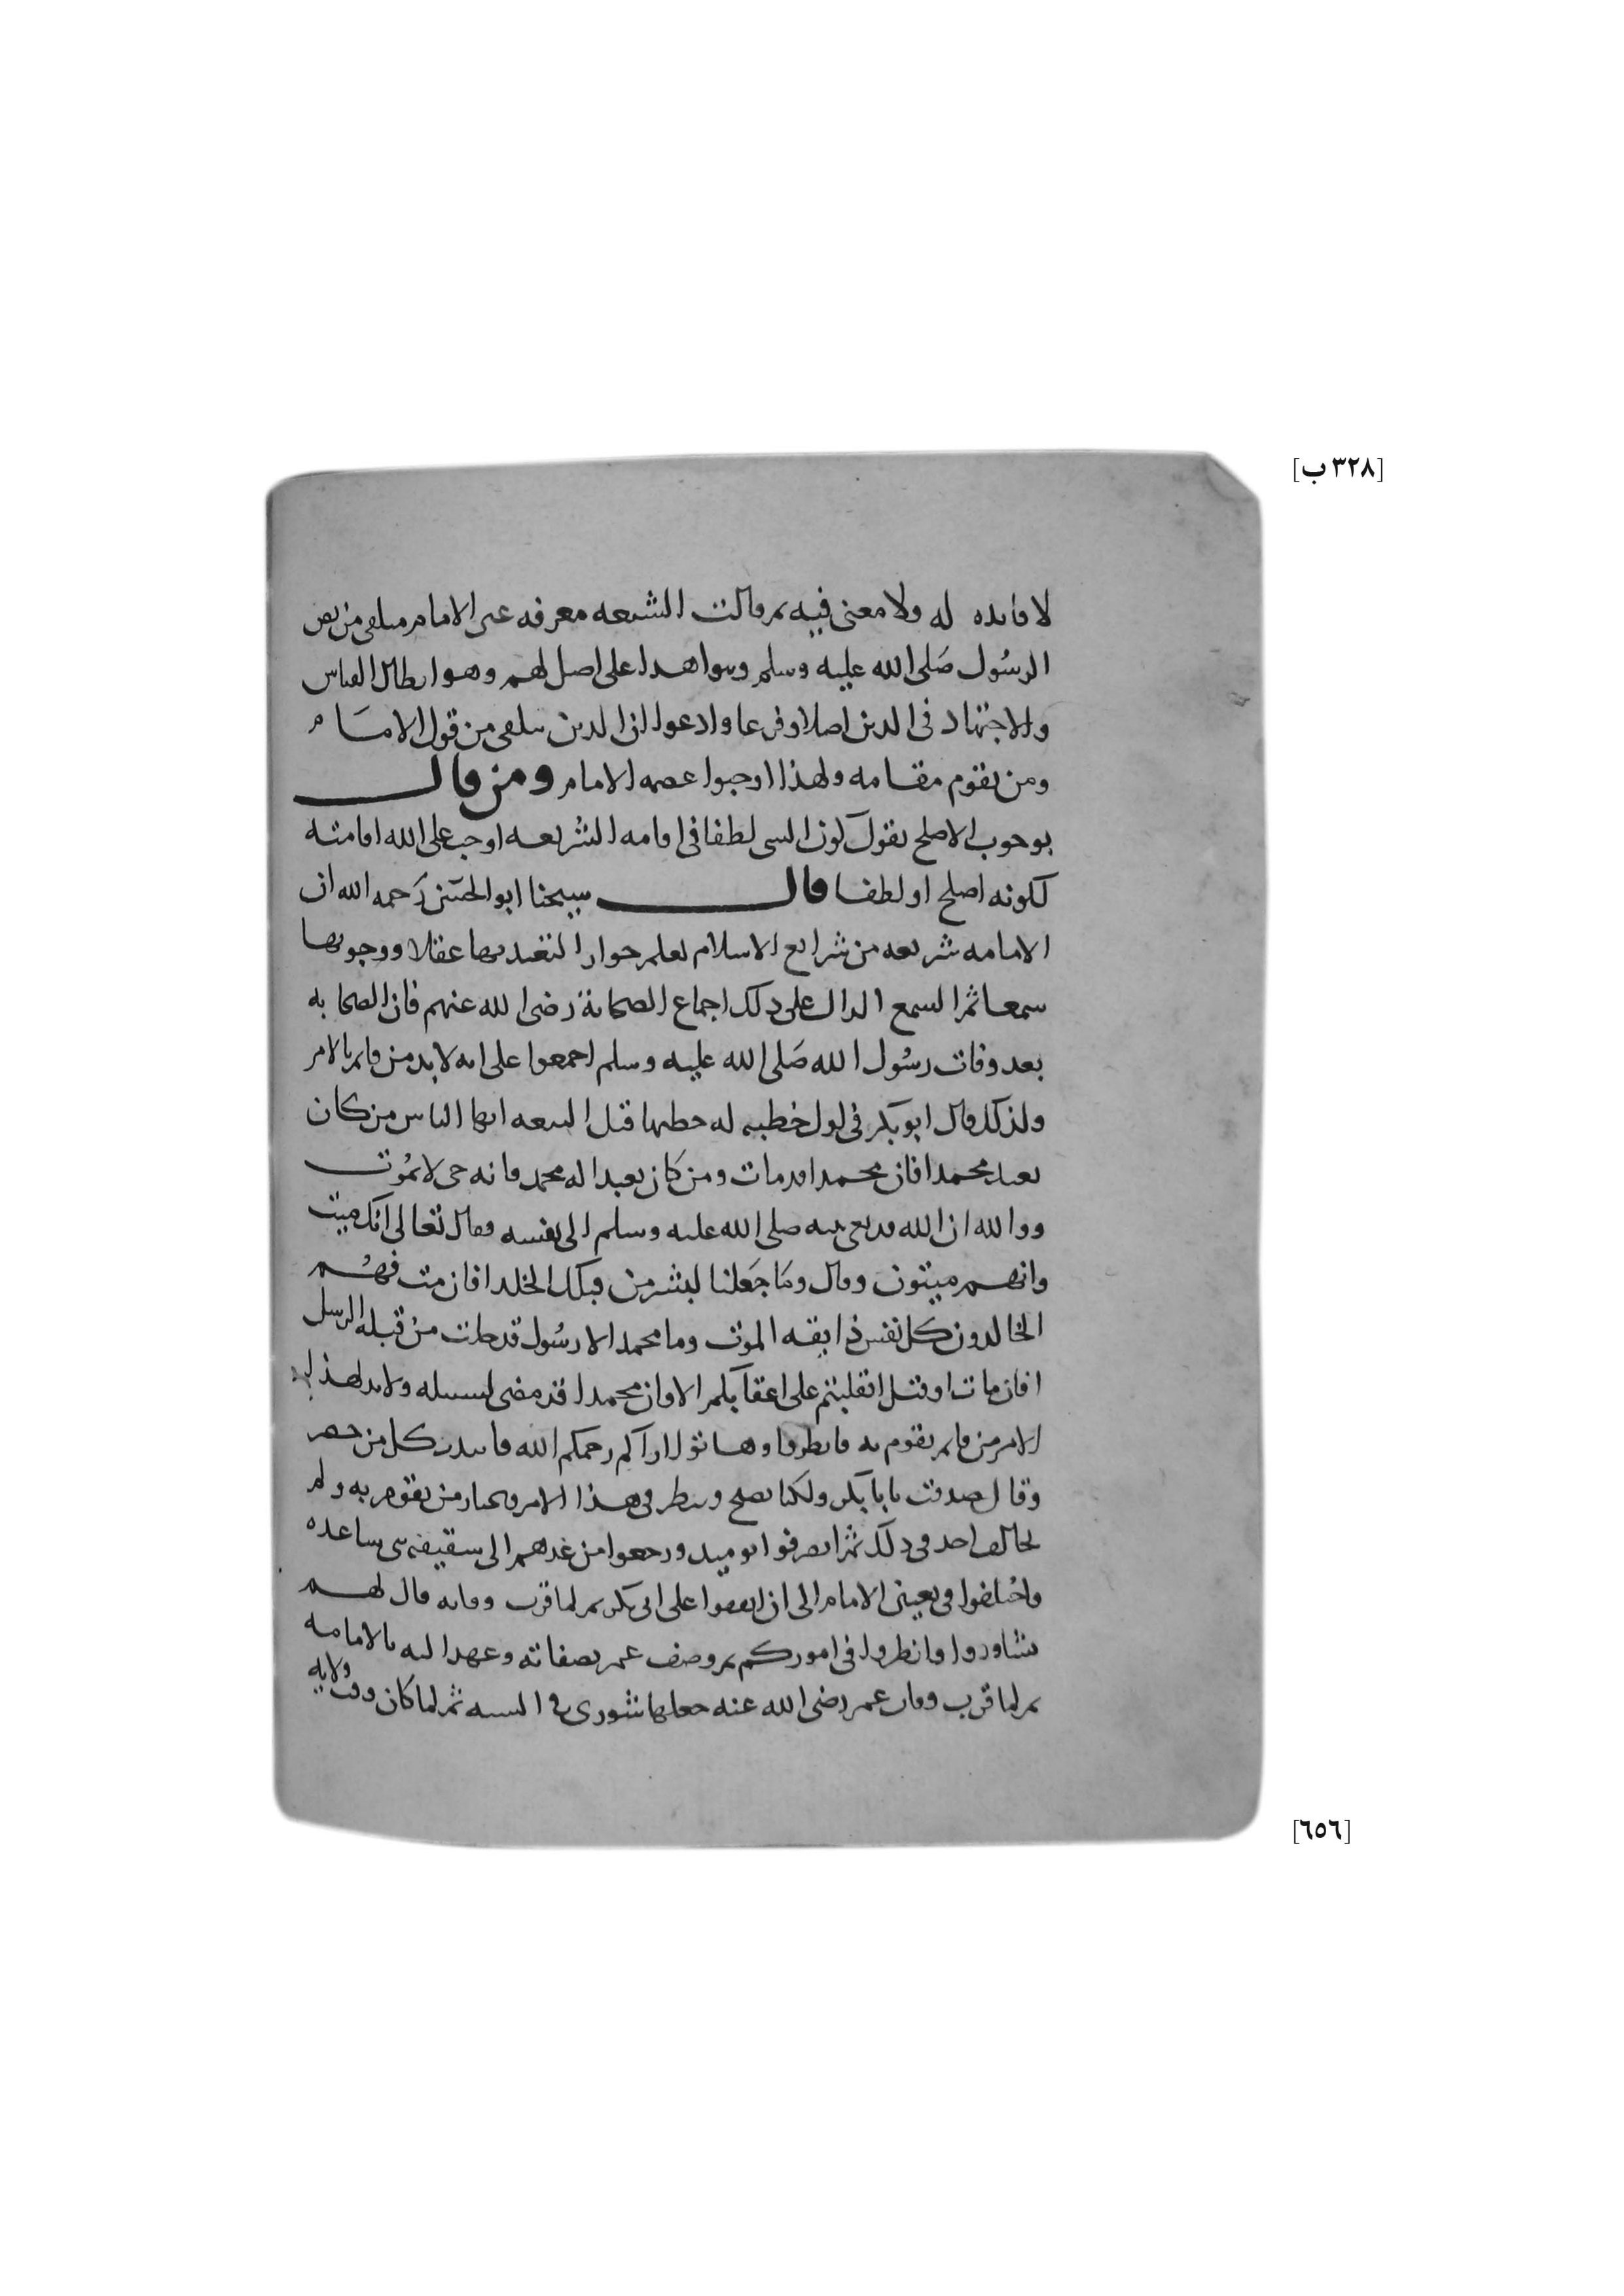 [٣٢٨ ب]
لا فائده له ولا معنى فيه ثم قالت الشيعه معرفه عين الامام متلقى من نص
الرسُول صَلى الله عليه وسلم وبنوا هذا على اصل لهم وهو ابطال القياس
والاجتهاد فى الدين اصلا وفرعا وادعوا ان الدين يتلقى من قول الامَام
ومن يقوم مقامه ولهذا اوجبوا عصمه الامام ومن قال
بوجوب الاصلح يقول لون السى لطفا فى اقامه الشريعه اوجب على الله اقامته
لكونه اصلح او لطفا قال شيخنا ابو الحسَن رَحمه الله ان
الامامه شريعه من شرايع الاسلام يعلم جواز التعبد بها عقلا ووجوبها
سمعا ثم السمع الدال على ذلك اجماع الصحابة رَضى الله عنهم فان الصحابه
بعد وفات رسُول الله صَلى الله عليه وسلم اجمعوا على انه لا بد من قايم بالامر
ولذلك قال ابو بكر فى اول خطبه له خطبها قبل البيعه ايها الناس من كان
يعبد محمدا فان محمدا قد مات ومن كان يعبد اله محمد فانه حى لا يمُوت
ووالله ان الله قد نعى نبيه صلى الله عليه وسلم الى نفسه وقال تعالى انك ميت
وانهم ميتون وقال وَمَا جَعَلنا لبشر من قبلك الخلد افان مت فهُم
الخالدون كل نفس ذايقه الموت وما محمد الا رسُول قد خلت من قبله الرسل
افان مات او قتل انقلبتم على اعقابكم الا وان محمدا قد مضى لسبيله ولا بد لهذا
الامر من قايم يقوم به فانظروا وهاتوا اراكم رحمكم الله فابتدر كل من حضر
وقال صدقت يابا بكر ولكنا نصلح وننظر فى هذا الامر ونختار من يقوم به ولم
يخالف احد فى ذلك ثم انصرفوا يوميد ورجعوا من غدهم الى سقيفه بنى ساعده
واختلفوا فى تعيين الامام الى ان اتفقوا على ابى بكر ثم لما قرب وفاته قال لهم
تشاوروا وانظروا فى اموركم ثم وصف عمر بصفاته وعهد اليه بالامامه
ثم لما قرب وفات عمر رضى الله عنه جعلها شورى فى السته ثم لما كان وقت ولايه
[٦٥٦]